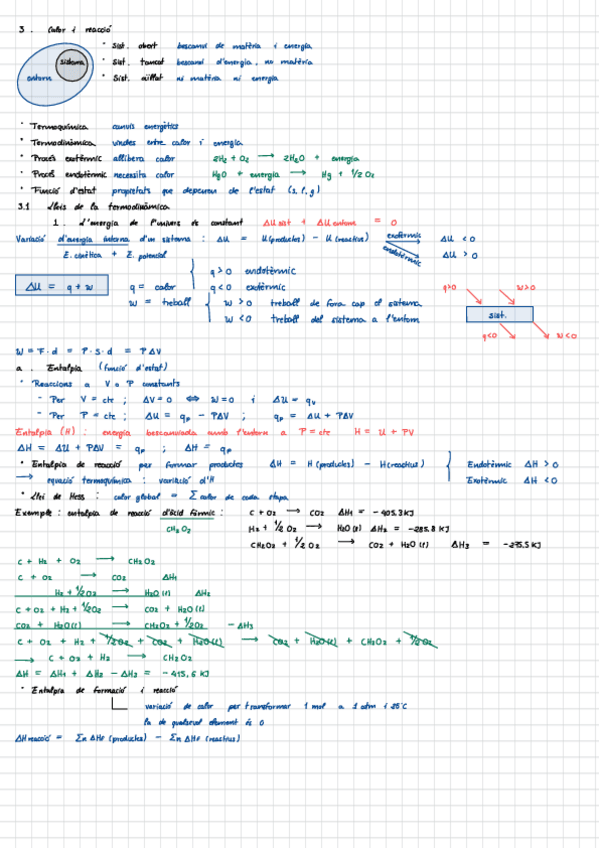 3. Calor i reacció
sistema
entorn
· Sist. obert bescanvi de matèria i energia
· Sist. tancat bescanvi d'energia, no matèria
· Sist. aïllat ni matèria ni energia
· Termoquímica canvis energètics
· Termodinàmica unides entre calor i energia
· Procés exotèrmic allibera calor 2H2 + O2 → 2H2O + energia
· Procés endotèrmic necessita calor HgO + energia → Hg + 1/2 O2
· Funció d'estat propietats que depenen de l'estat (s, l, g)
3.1 Lleis de la termodinàmica
1. L'energia de l'univers és constant ΔU sist + ΔU entorn = 0
Variació d'energia interna d'un sistema : ΔU = U(productes) - U(reactius) exotèrmic ΔU < 0
E. cinètica + E. potencial endotèrmic ΔU > 0
ΔU = q + w q = calor q > 0 endotèrmic
q < 0 exotèrmic
w = treball w > 0 treball de fora cap al sistema
w < 0 treball del sistema a l'entorn
q>0 w>0
sist.
q<0 w<0
W = F · d = P · S · d = PΔV
a. Entalpia (funció d'estat)
· Reaccions a V o P constants
- Per V = cte ; ΔV = 0 ⇔ W = 0 i ΔU = qv
- Per P = cte ; ΔU = qp - PΔV ; qp = ΔU + PΔV
Entalpia (H) : energia bescanviada amb l'entorn a P = cte H = U + PV
ΔH = ΔU + PΔV = qp ; ΔH = qp
· Entalpia de reacció per formar productes ΔH = H(productes) - H(reactius) Endotèrmic ΔH > 0
→ equació termoquímica : variació d'H Exotèrmic ΔH < 0
· Llei de Hess : calor global = Σ calor de cada etapa
Exemple : entalpia de reacció d'àcid fòrmic : C + O2 → CO2 ΔH1 = - 405.3 KJ
CH2O2 H2 + 1/2 O2 → H2O (l) ΔH2 = -285.8 KJ
CH2O2 + 1/2 O2 → CO2 + H2O (l) ΔH3 = -275.5 KJ
C + H2 + O2 → CH2O2
C + O2 → CO2 ΔH1
H2 + 1/2 O2 → H2O (l) ΔH2
C + O2 + H2 + 1/2 O2 → CO2 + H2O (l)
CO2 + H2O (l) → CH2O2 + 1/2 O2 - ΔH3
C + O2 + H2 + 1/2 O2 + CO2 + H2O (l) → CO2 + H2O (l) + CH2O2 + 1/2 O2
→ C + O2 + H2 → CH2O2
ΔH = ΔH1 + ΔH2 - ΔH3 = - 415,6 KJ
· Entalpia de formació i reacció
variació de calor per transformar 1 mol a 1 atm i 25°C
la de qualsevol element és 0
ΔH reacció = Σn ΔHF (productes) - Σn ΔHF (reactius)